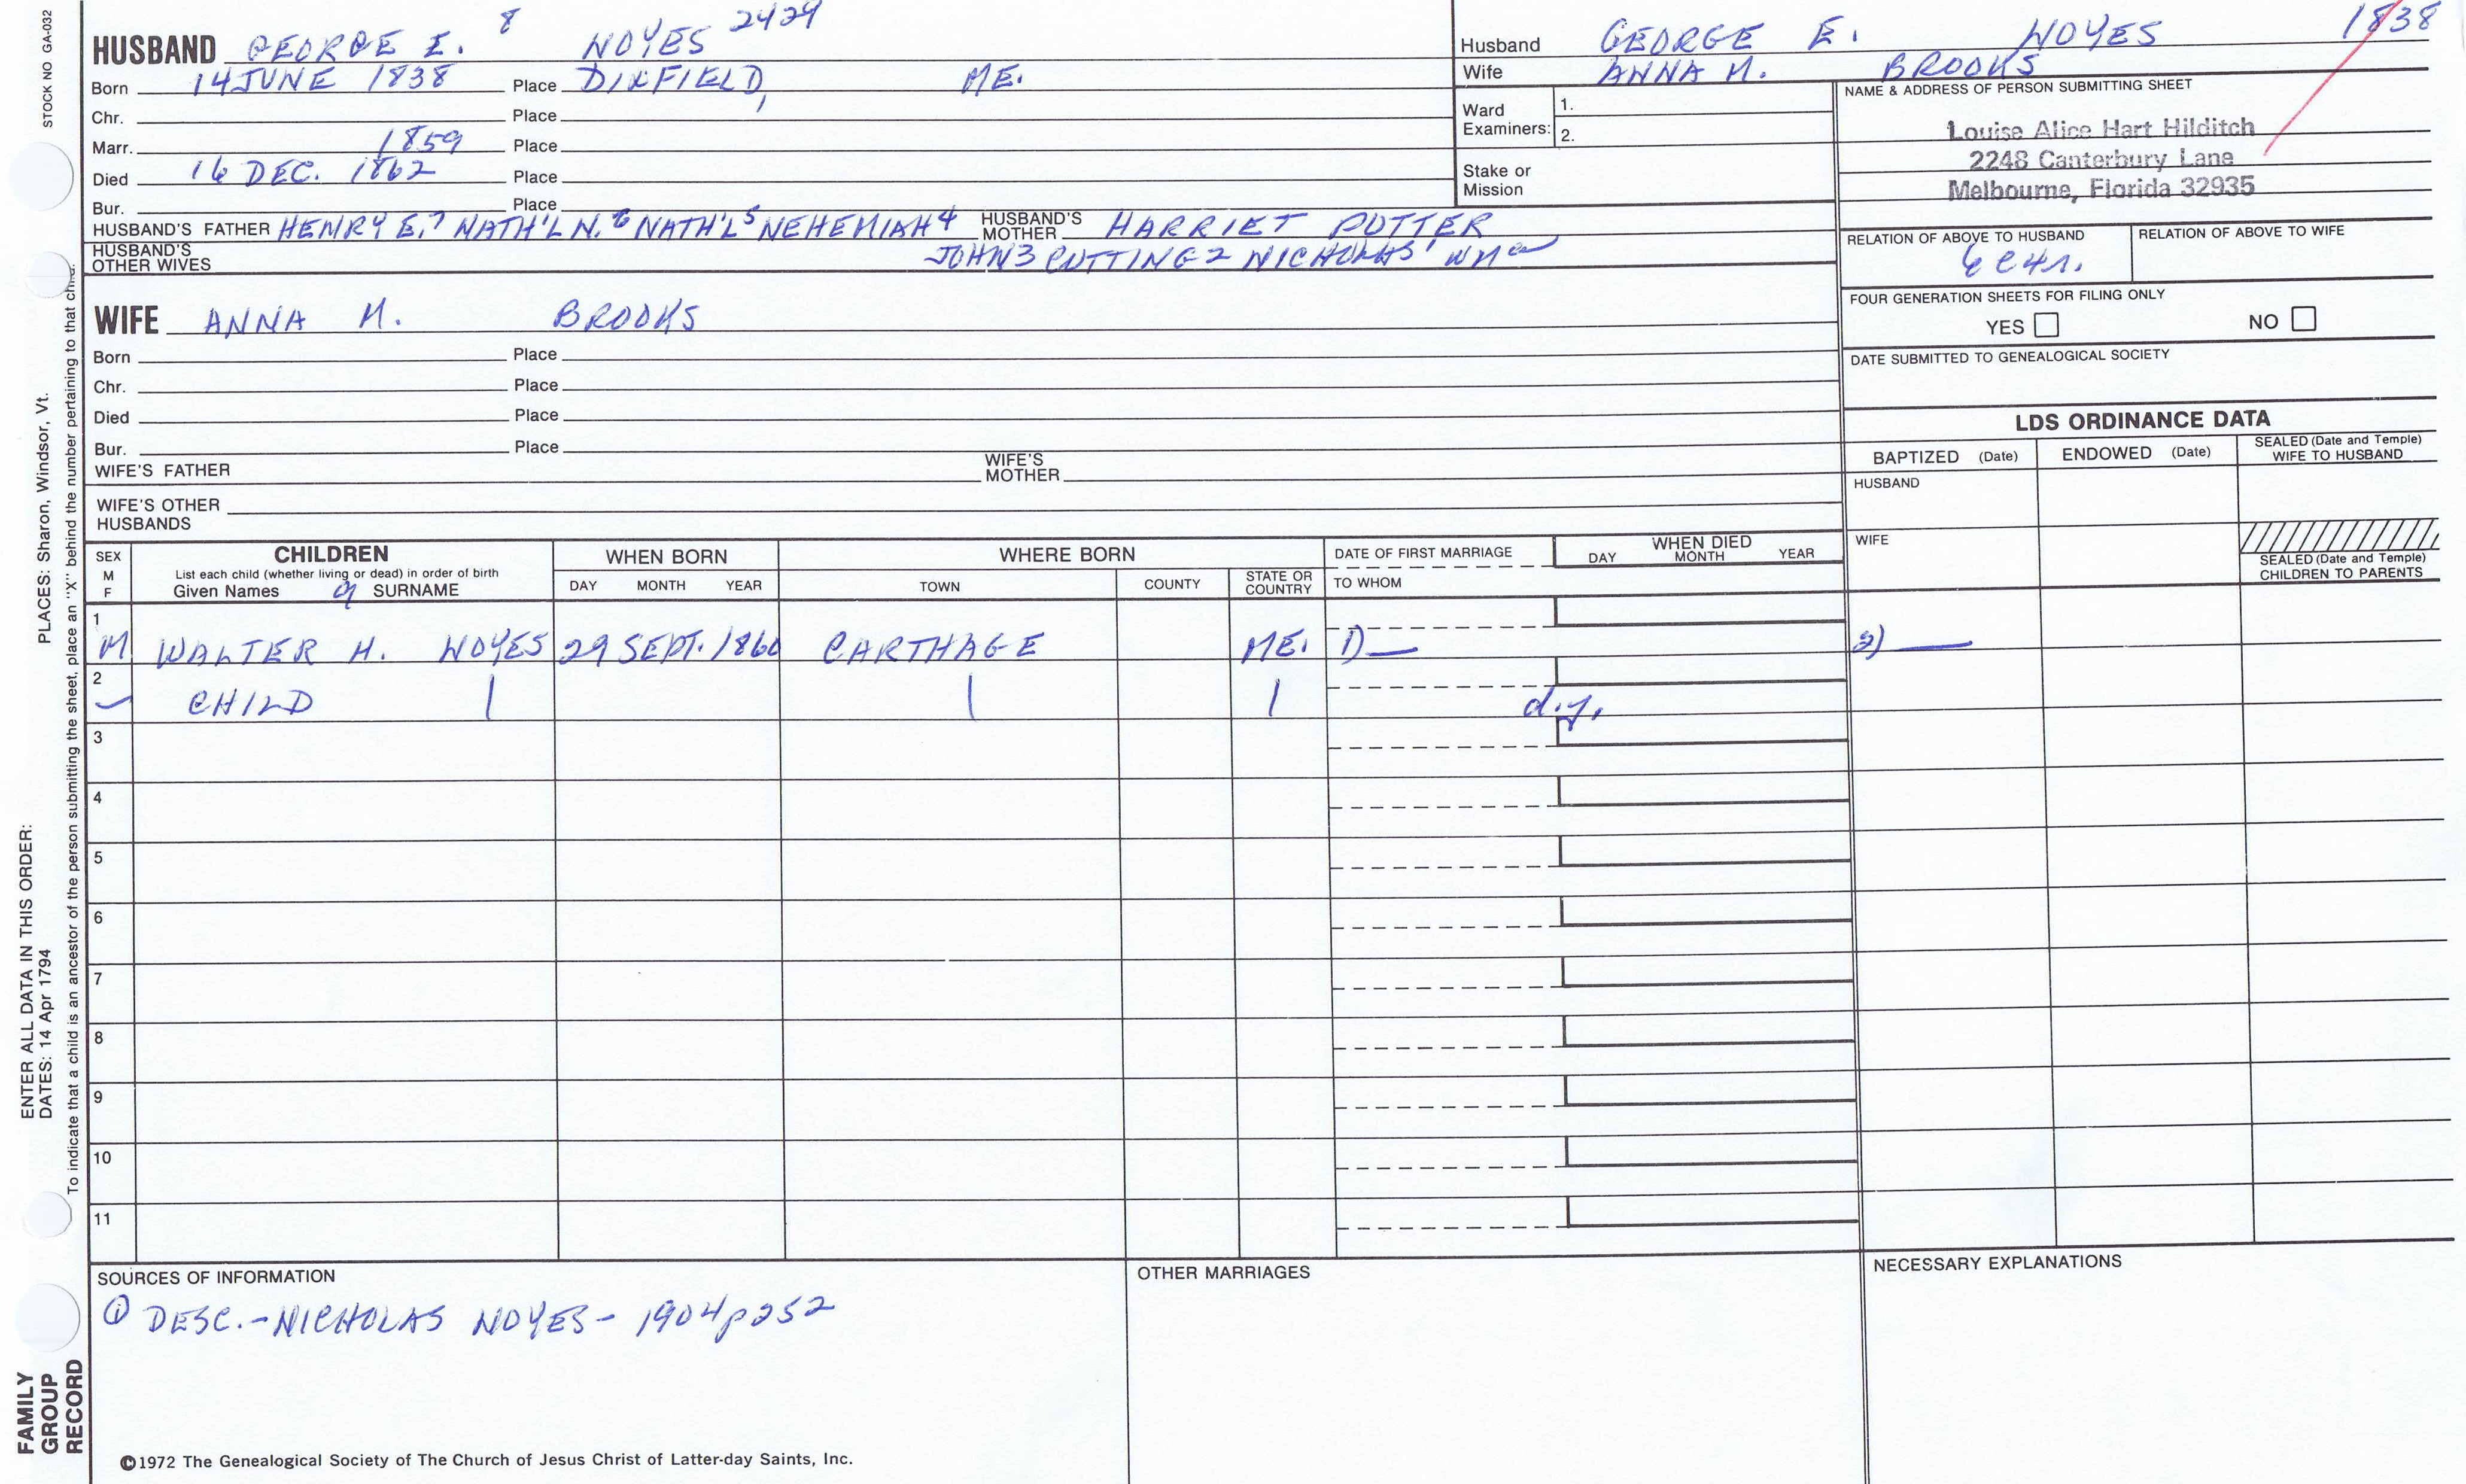 STOCK NO GA-032
HUSBAND GEORGE E. 8 NOYES 2429
Born 14 JUNE 1838 Place DIXFIELD, ME.
Chr. Place
Marr. 1859 Place
Died 16 DEC. 1862 Place
Bur. Place
HUSBAND'S FATHER HENRY E.7 NATH'L N.6 NATH'L5 NEHEMIAH4 HUSBAND'S MOTHER HARRIET POTTER
HUSBAND'S OTHER WIVES JOHN3 CUTTING2 NICHOLAS1 WM
Husband GEORGE E. NOYES 1838
Wife ANNA M. BROOKS
Ward Examiners: 1.
2.
Stake or Mission
NAME & ADDRESS OF PERSON SUBMITTING SHEET
Louise Alice Hart Hilditch
2248 Canterbury Lane
Melbourne, Florida 32935
RELATION OF ABOVE TO HUSBAND RELATION OF ABOVE TO WIFE
6C4R.
FOUR GENERATION SHEETS FOR FILING ONLY
YES NO
DATE SUBMITTED TO GENEALOGICAL SOCIETY
WIFE ANNA M. BROOKS
Born Place
Chr. Place
Died Place
Bur. Place
WIFE'S FATHER WIFE'S MOTHER
WIFE'S OTHER HUSBANDS
LDS ORDINANCE DATA
BAPTIZED (Date) ENDOWED (Date) SEALED (Date and Temple) WIFE TO HUSBAND
HUSBAND
WIFE
SEALED (Date and Temple) CHILDREN TO PARENTS
SEX M F CHILDREN WHEN BORN WHERE BORN DATE OF FIRST MARRIAGE WHEN DIED
List each child (whether living or dead) in order of birth
Given Names 9 SURNAME DAY MONTH YEAR TOWN COUNTY STATE OR COUNTRY TO WHOM DAY MONTH YEAR
1 M WALTER H. NOYES 29 SEPT. 1860 CARTHAGE ME. 1) — 2) —
2 CHILD d.y.
3
4
5
6
7
8
9
10
11
SOURCES OF INFORMATION
① DESC.-NICHOLAS NOYES-1904 p252
OTHER MARRIAGES
NECESSARY EXPLANATIONS
©1972 The Genealogical Society of The Church of Jesus Christ of Latter-day Saints, Inc.
FAMILY GROUP RECORD
ENTER ALL DATA IN THIS ORDER:
DATES: 14 Apr 1794 PLACES: Sharon, Windsor, Vt.
To indicate that a child is an ancestor of the person submitting the sheet, place an "X" behind the number pertaining to that child.